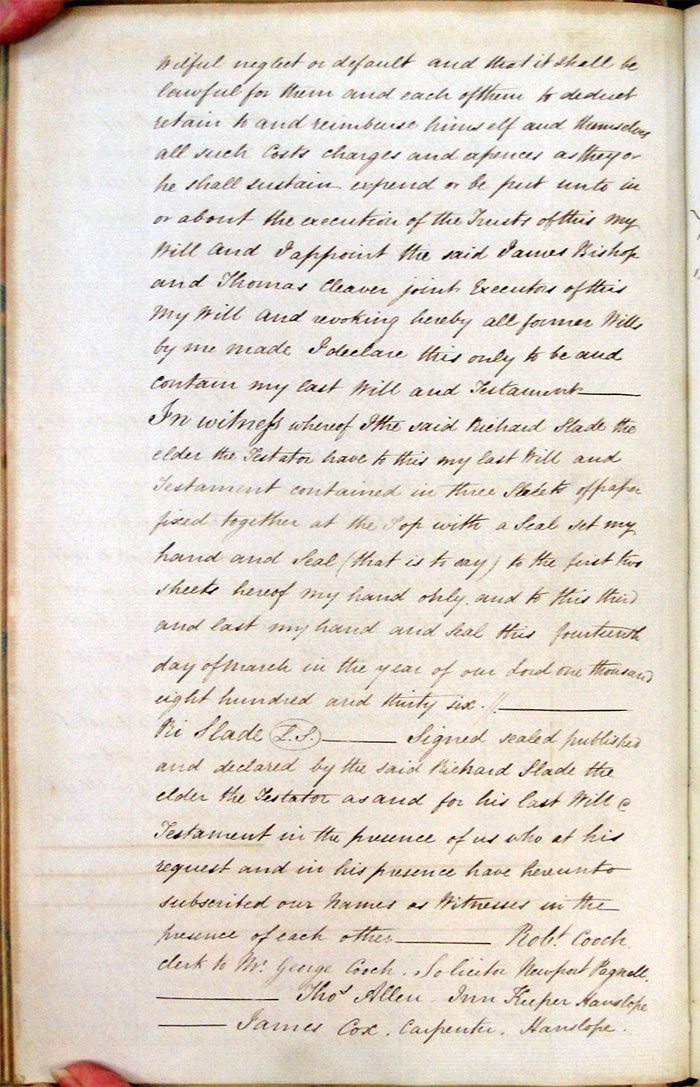 Wilful neglect or default and that it shall be
lawful for them and each of them to deduct
retain to and reimburse himself and themselves
all such Costs charges and expences as they or
he shall sustain expend or be put unto in
or about the execution of the Trusts of this my
Will And I appoint the said James Bishop
and Thomas Cleaver joint Executors of this
my Will And revoking hereby all former Wills
by me made I declare this only to be and
contain my last Will and Testament
In witness whereof I the said Richard Slade the
elder the Testator have to this my last Will and
Testament contained in three Sheets of paper
fixed together at the Top with a Seal set my
hand and Seal (that is to say) to the first two
sheets hereof my hand only and to this third
and last my hand and Seal this fourteenth
day of March in the year of our Lord one thousand
eight hundred and thirty six. //
Ri Slade (L.S.) Signed sealed published
and declared by the said Richard Slade the
elder the Testator as and for his last Will &
Testament in the presence of us who at his
request and in his presence have hereunto
subscribed our Names as Witnesses in the
presence of each other Robt. Cooch
clerk to Mr. George Cooch. Solicitor Newport Pagnell.
Thos Allen. Inn Keeper Hanslope
James Cox. Carpenter. Hanslope.